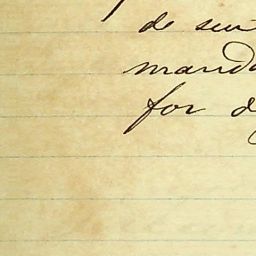 de seu
manda
for d